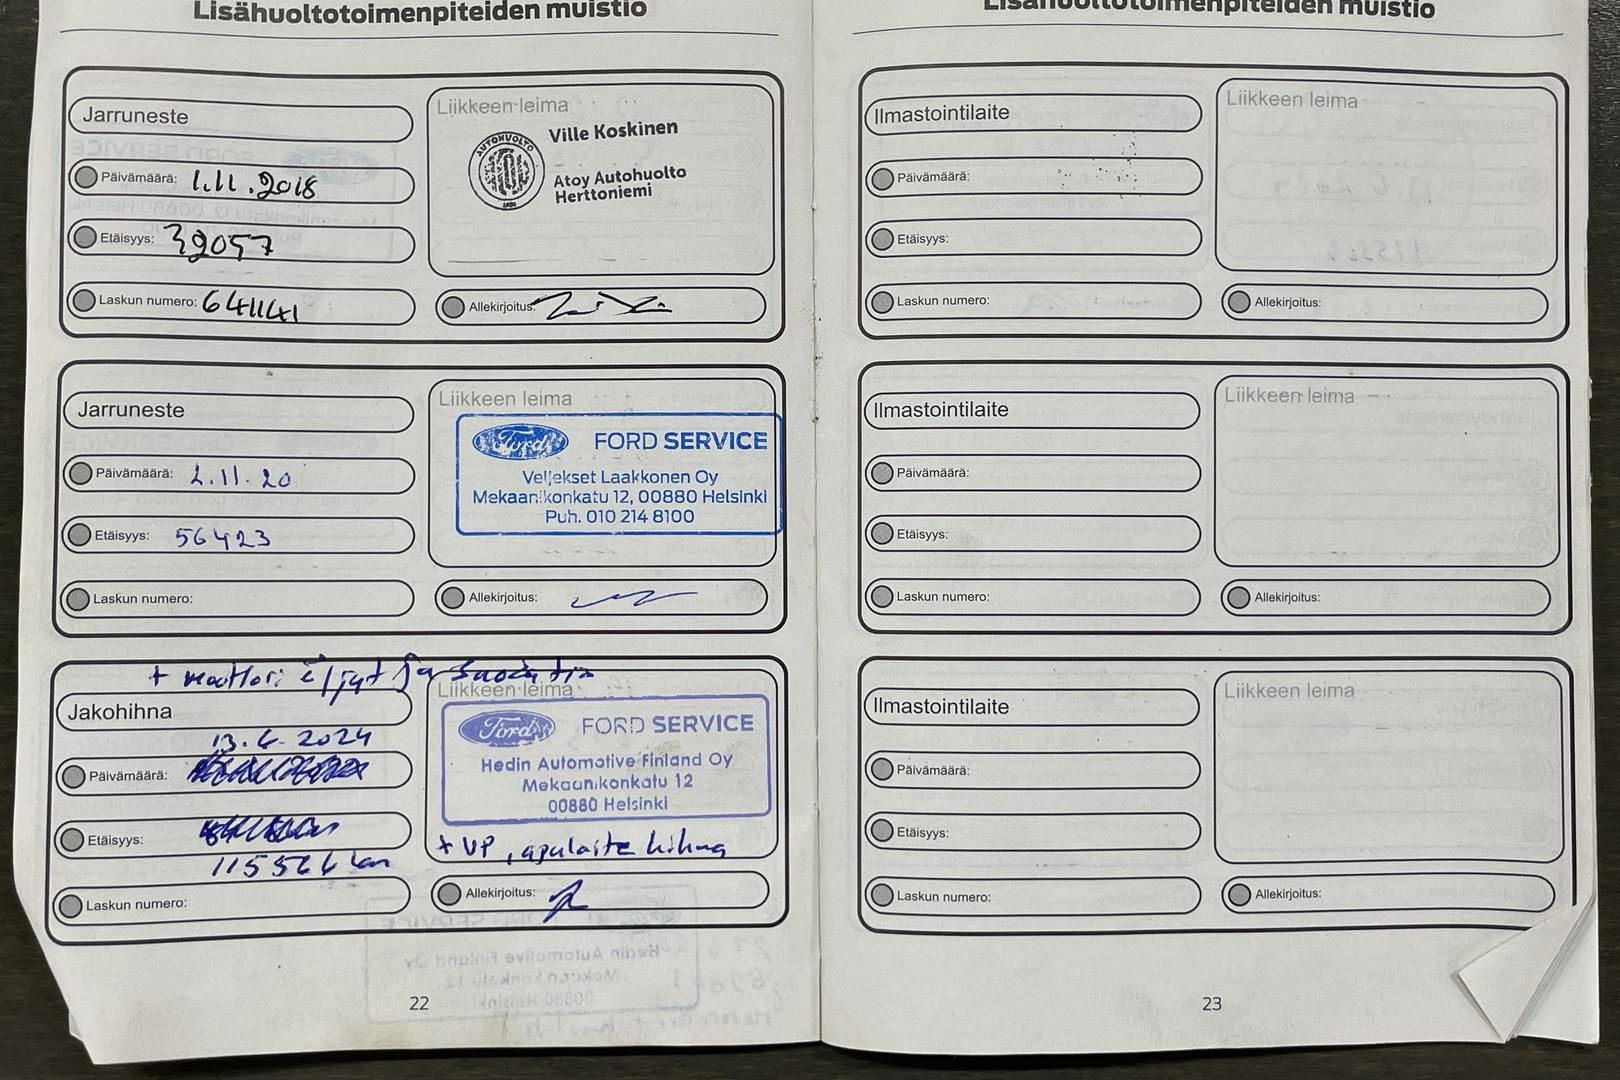 Lisähuoltotoimenpiteiden muistio
Jarruneste
Päivämäärä: 1.11.2018
Etäisyys: 39057
Laskun numero: 641141
Liikkeen leima
AUTOHUOLTO
Ville Koskinen
Atoy Autohuolto
Herttoniemi
Allekirjoitus:
Jarruneste
Päivämäärä: 2.11.20
Etäisyys: 56423
Laskun numero:
Liikkeen leima
Ford FORD SERVICE
Veljekset Laakkonen Oy
Mekaanikonkatu 12, 00880 Helsinki
Puh. 010 214 8100
Allekirjoitus:
+ moottori öljyt ja suodatin
Jakohihna
13.6.2024
Päivämäärä:
Etäisyys:
115566 km
Laskun numero:
Liikkeen leima
Ford FORD SERVICE
Hedin Automotive Finland Oy
Mekaanikonkatu 12
00880 Helsinki
+ VP, apulaite hihna
Allekirjoitus:
22
Lisähuoltotoimenpiteiden muistio
Ilmastointilaite
Päivämäärä:
Etäisyys:
Laskun numero:
Liikkeen leima
Allekirjoitus:
Ilmastointilaite
Päivämäärä:
Etäisyys:
Laskun numero:
Liikkeen leima
Allekirjoitus:
Ilmastointilaite
Päivämäärä:
Etäisyys:
Laskun numero:
Liikkeen leima
Allekirjoitus:
23